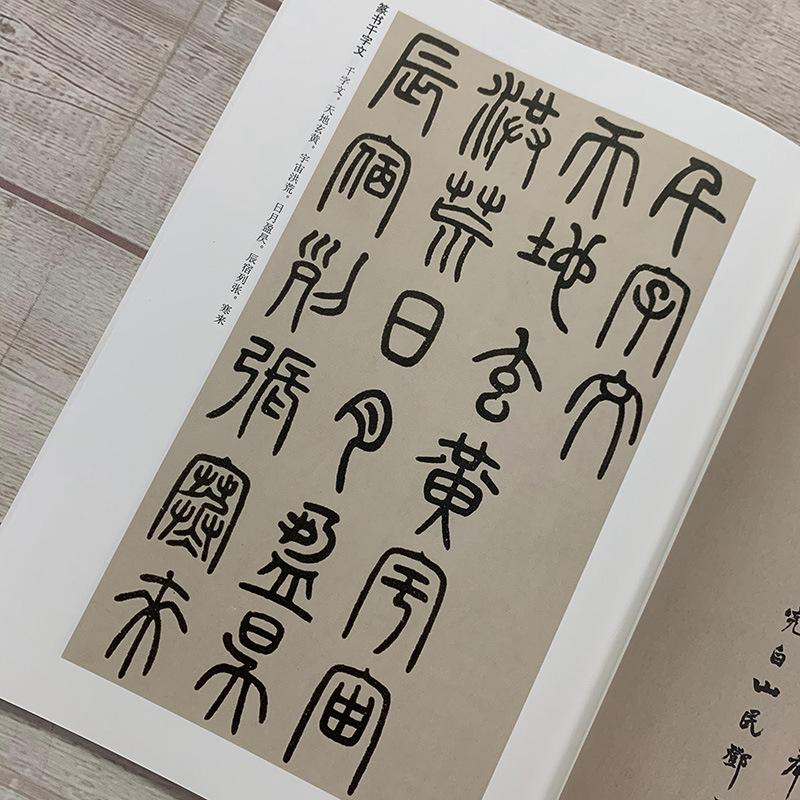 千字文
天地玄黃宇宙
洪荒日月盈昃
辰宿列張寒來
篆书千字文　千字文。天地玄黄。宇宙洪荒。日月盈昃。辰宿列张。寒来
完白山民鄧